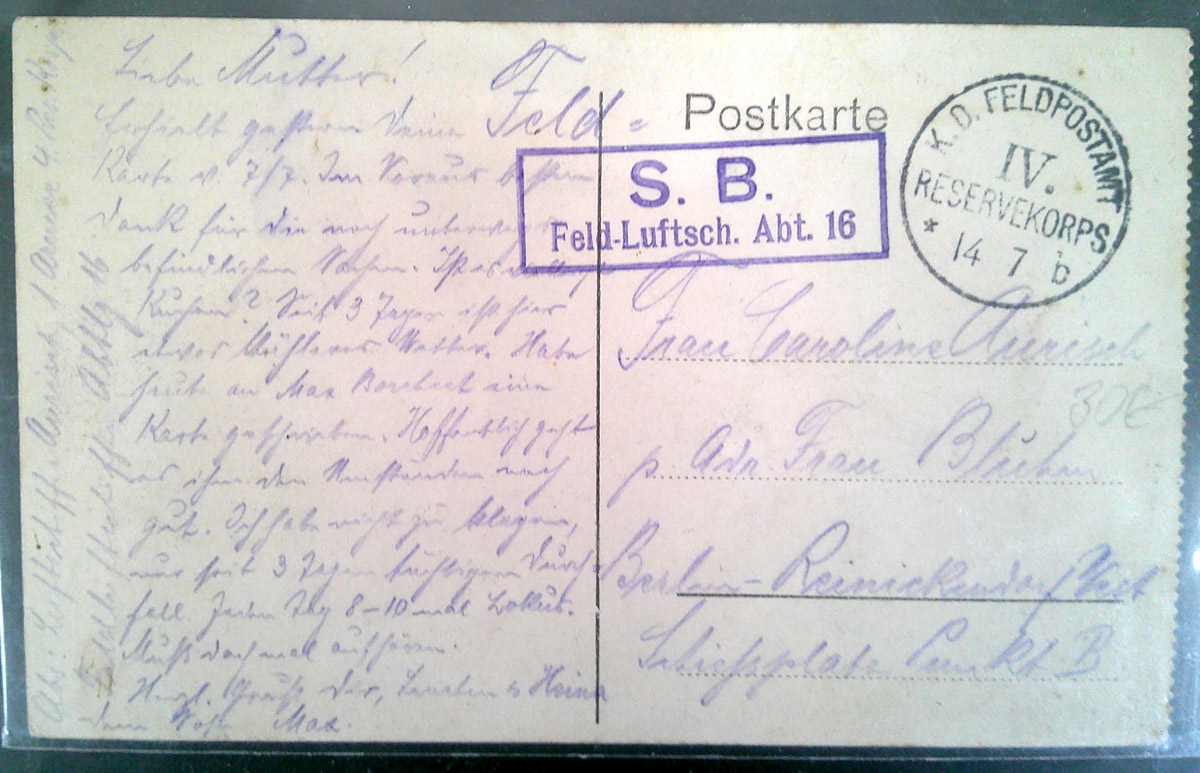 Liebe Mutter!
Erhielt gestern Deine
Karte v. 7/7. Im Voraus besten
Dank für die noch unterwegs
befindlichen Sachen. Ist es
Kuchen? Seit 3 Tagen ist hier
etwas kühleres Wetter. Habe
heute an Max eine
Karte geschrieben. Hoffentlich geht
es ihm den Umständen nach
gut. Ich habe nicht zu klagen,
nur seit 3 Tagen tüchtigen Durch=
fall. Jeden Tag 8–10 mal Lokus.
Muß doch mal aufhören.
Herzl. Gruß Dir, &
Dein Sohn Max.
Abs: Luftschiff. Aurisch, 1 Armee 4 Res. Korps
Abtlg 16
Feld=
Postkarte
S. B.
Feld-Luftsch. Abt. 16
K. D. FELDPOSTAMT
IV.
RESERVEKORPS
* 14 7 b
Frau Caroline Aurisch
p. Adr. Frau Blühm
Berlin-Reinickendorf West
Schießplatz Punkt B
30€